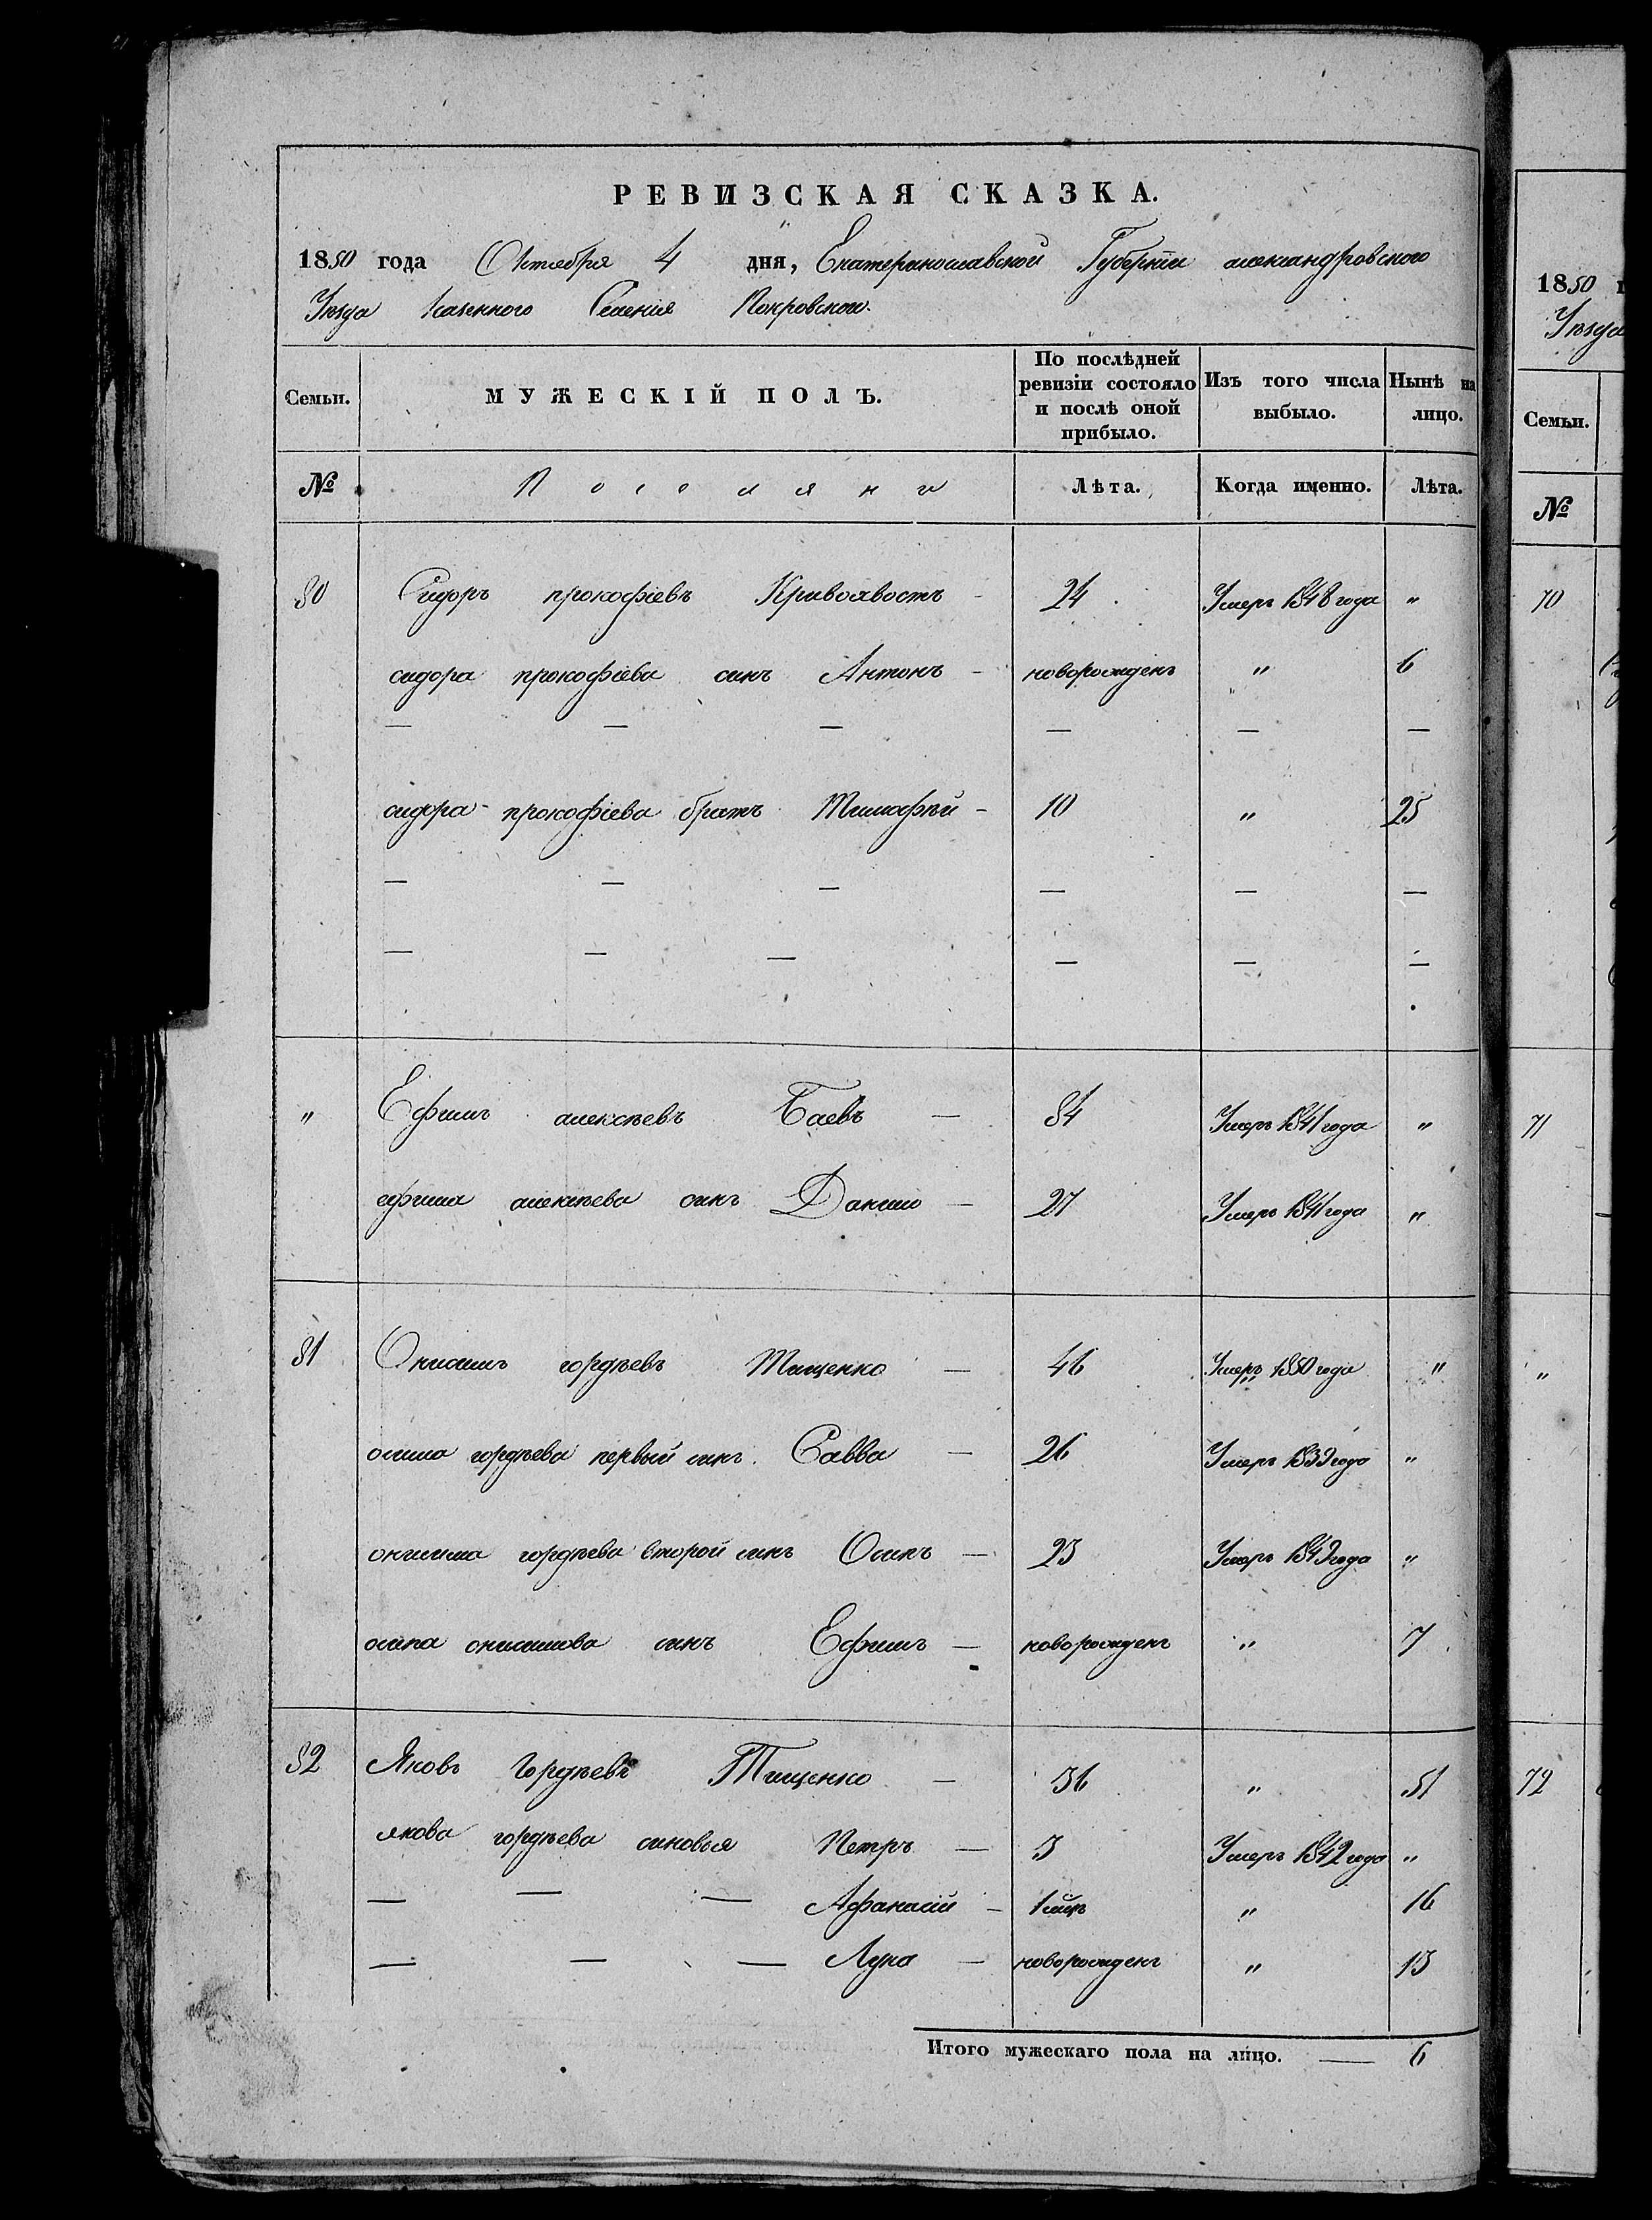 РЕВИЗСКАЯ СКАЗКА.
1850 года Октября 4 дня, Екатеринославской Губернiи александровского
Уезда Казенного Селения Покровского.
Семьи. МУЖЕСКIЙ ПОЛЪ. По послѣдней ревизiи состояло и послѣ оной прибыло. Изъ того числа выбыло. Нынѣ на лицо.
№ Поселяни Лѣта. Когда именно. Лѣта.
80 Сидоръ прокофiевъ Кривохвостъ - 24 Умеръ 1848 года "
сидора прокофiева синъ Антонъ - новорожденъ " 6
— — — — — —
сидора прокофiева братъ Тимофѣй - 10 " 25
— — — — — —
— — — — — —
" Ефимъ алексѣевъ Баевъ — 84 Умеръ 1841 года "
ефима алексѣева синъ Данило — 27 Умеръ 1841 года "
81 Онисимъ гордѣевъ Тищенко — 46 Умеръ 1850 года "
гордѣева первый синъ Савва — 26 Умеръ 1839 года "
онисима гордѣева второй синъ Осипъ — 23 Умеръ 1849 года "
осипа онисимова синъ Ефимъ — новорожденъ " 7
82 Яковъ Гордѣевъ Тищенко — 36 " 51
якова гордѣева синовья Петръ — 3 Умеръ 1842 года "
— — — Афанасiй — 1 " 16
— — — Лука — новорожденъ " 13
Итого мужескаго пола на лицо. — 6
1850
Уезда
Семьи.
№
70
71
"
72